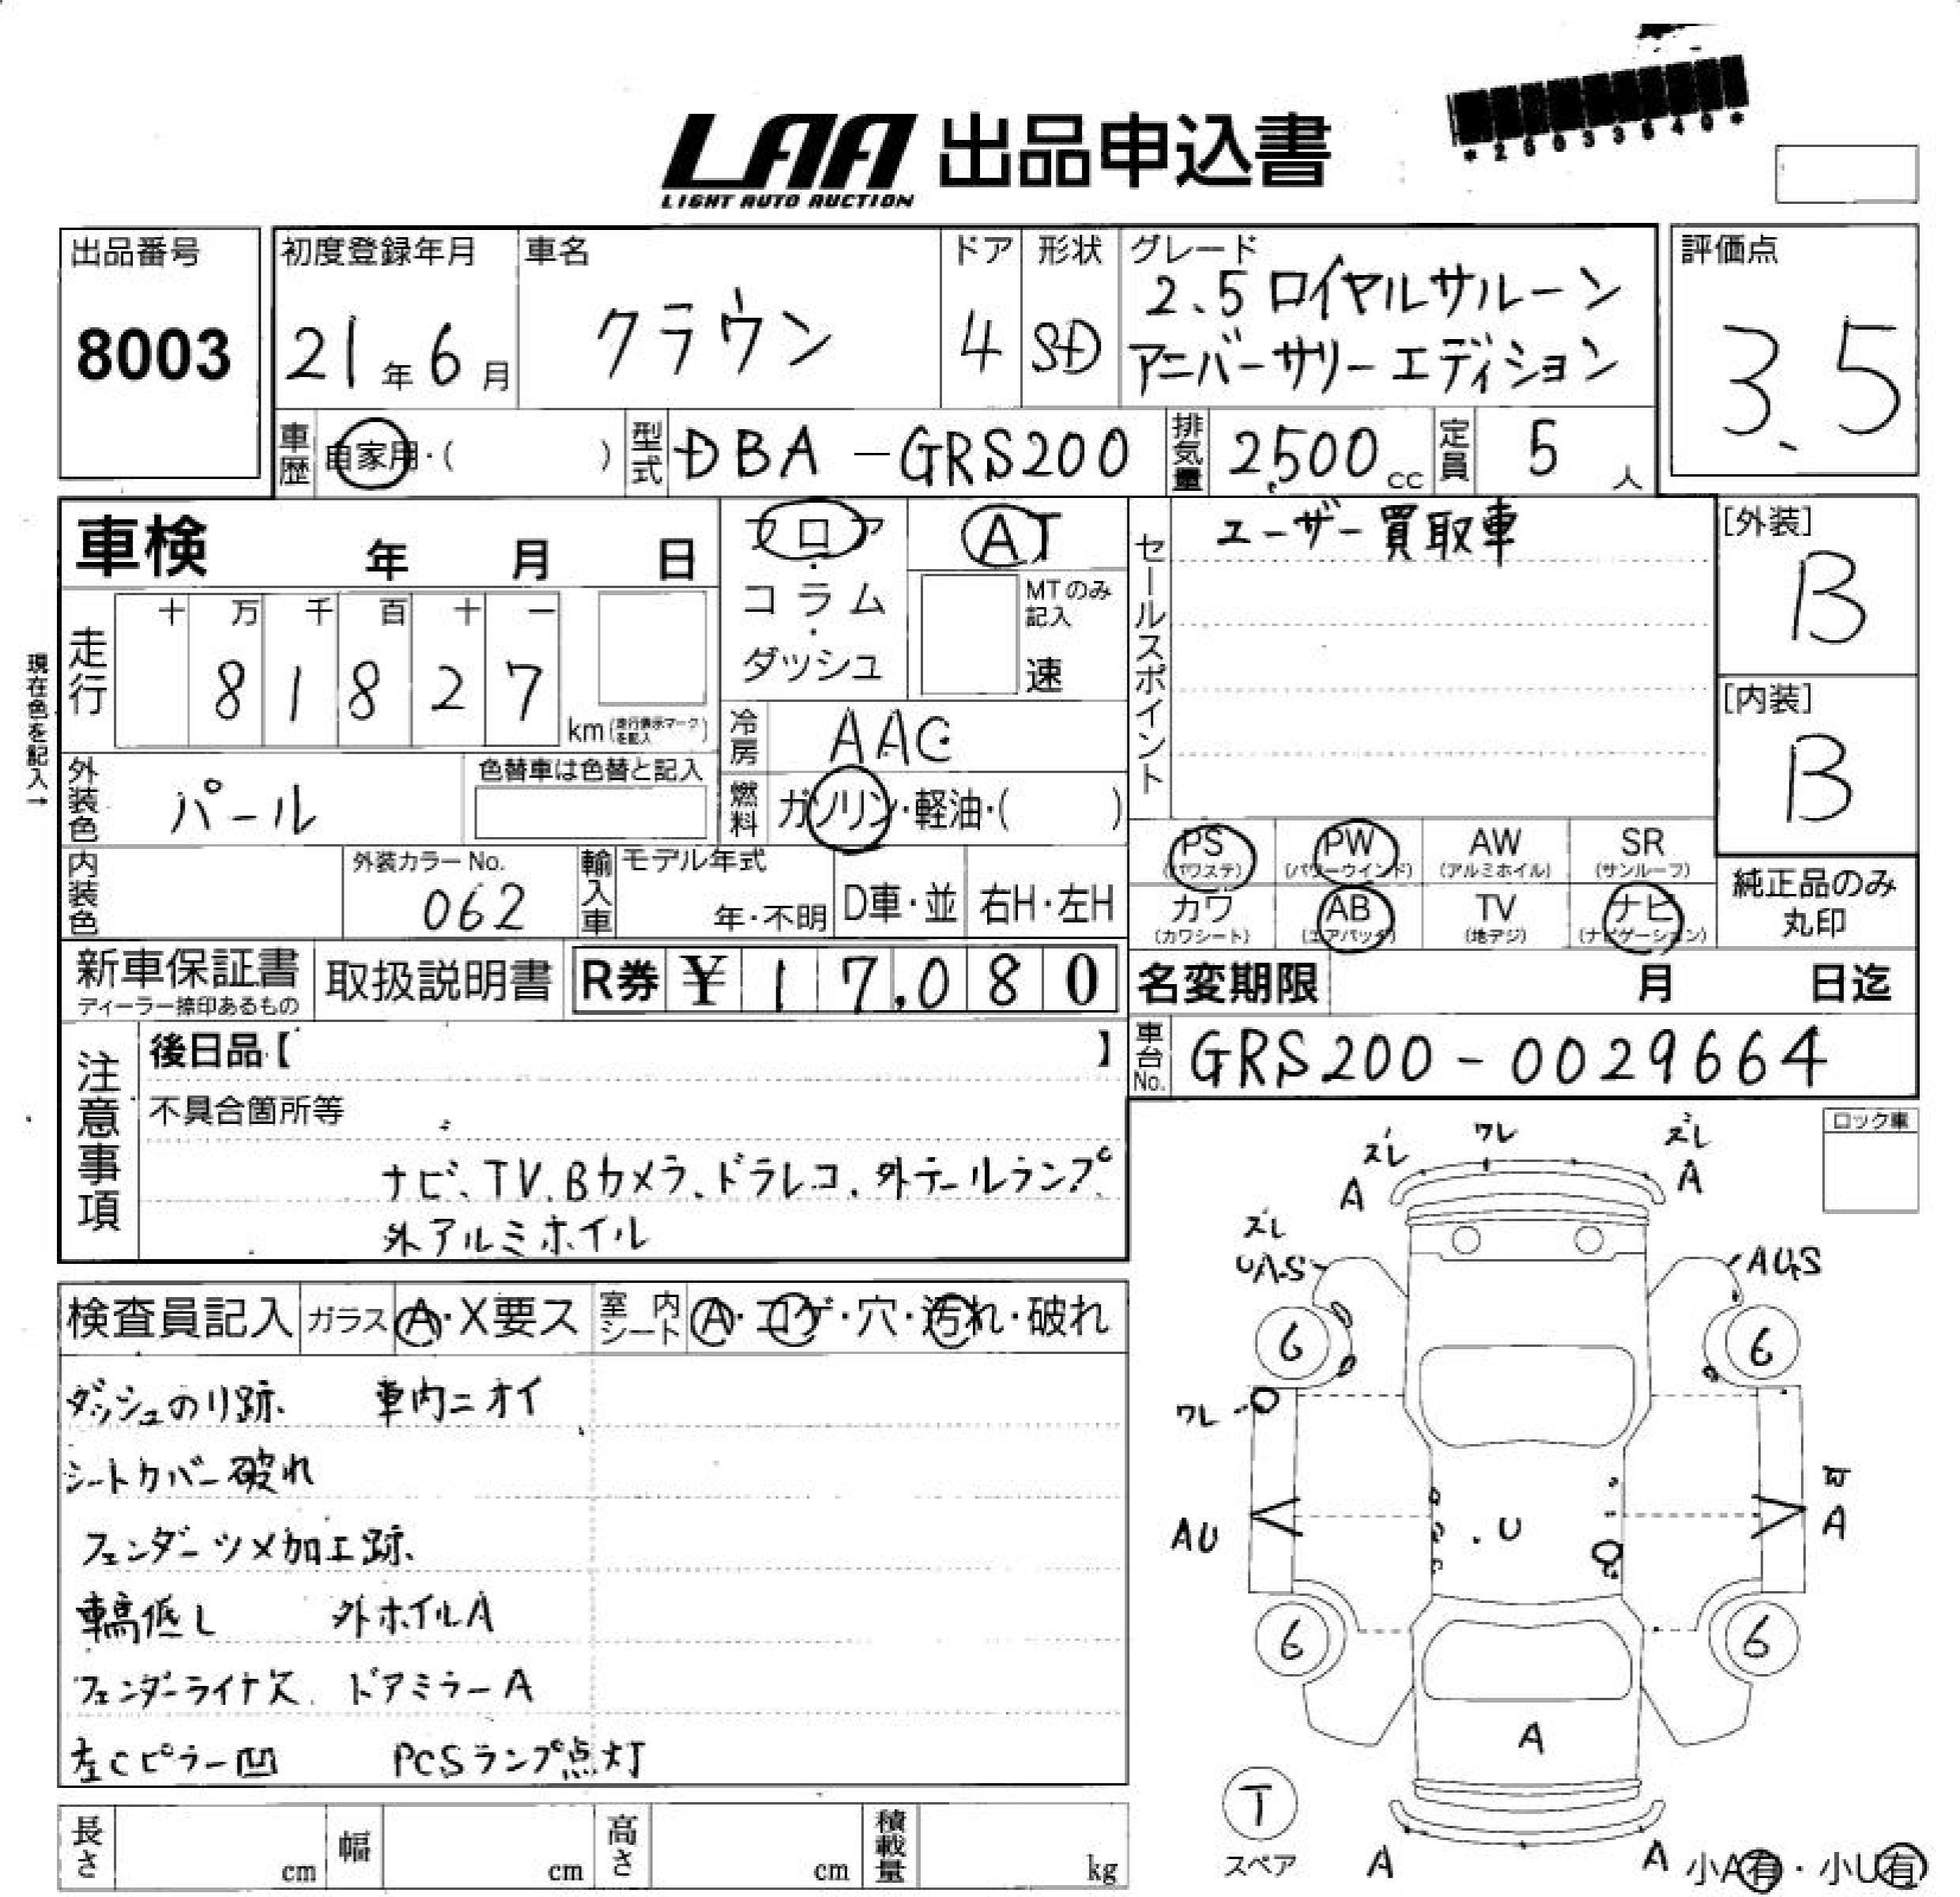 LAA 出品申込書
LIGHT AUTO AUCTION
出品番号
8003
初度登録年月
21年6月
車名
クラウン
ドア
4
形状
SD
グレード
2.5ロイヤルサルーン
アニバーサリーエディション
評価点
3.5
車歴
自家用・( )
型式
DBA-GRS200
排気量
2,500cc
定員
5人
車検 年 月 日
フロア・コラム・ダッシュ
AT
MTのみ記入
速
セールスポイント
ユーザー買取車
[外装]
B
[内装]
B
現在色を記入→
走行
十 万 千 百 十 一
8 1 8 2 7
km(走行表示マークを記入)
冷房
AAC
外装色
パール
色替車は色替と記入
燃料
ガソリン・軽油・( )
PS
(パワステ)
PW
(パワーウインド)
AW
(アルミホイル)
SR
(サンルーフ)
カワ
(カワシート)
AB
(エアバッグ)
TV
(地デジ)
ナビ
(ナビゲーション)
純正品のみ
丸印
内装色
外装カラーNo.
062
輸入車
モデル年式
年・不明
D車・並
右H・左H
新車保証書
ディーラー捺印あるもの
取扱説明書
R券 ¥17,080
名変期限 月 日迄
車台No.
GRS200-0029664
注意事項
後日品【 】
不具合箇所等
ナビ、TV、Bカメラ、ドラレコ、外テールランプ、
外アルミホイル
ロック車
ズレ
ワレ
ズレ
A
A
ズレ
UA-S
AUS
6
6
ワレ
AU
U
A
6
6
A
T
スペア
A
A
小A有・小U有
検査員記入
ガラス
A・X要ス
室内シート
A・コゲ・穴・汚れ・破れ
ダッシュのり跡、 車内ニオイ
シートカバー破れ
フェンダーツメ加工跡、
車高低し 外ホイルA
フェンダーライナ欠、 ドアミラーA
左Cピラー凹 PCSランプ点灯
長さ cm
幅 cm
高さ cm
積載量 kg